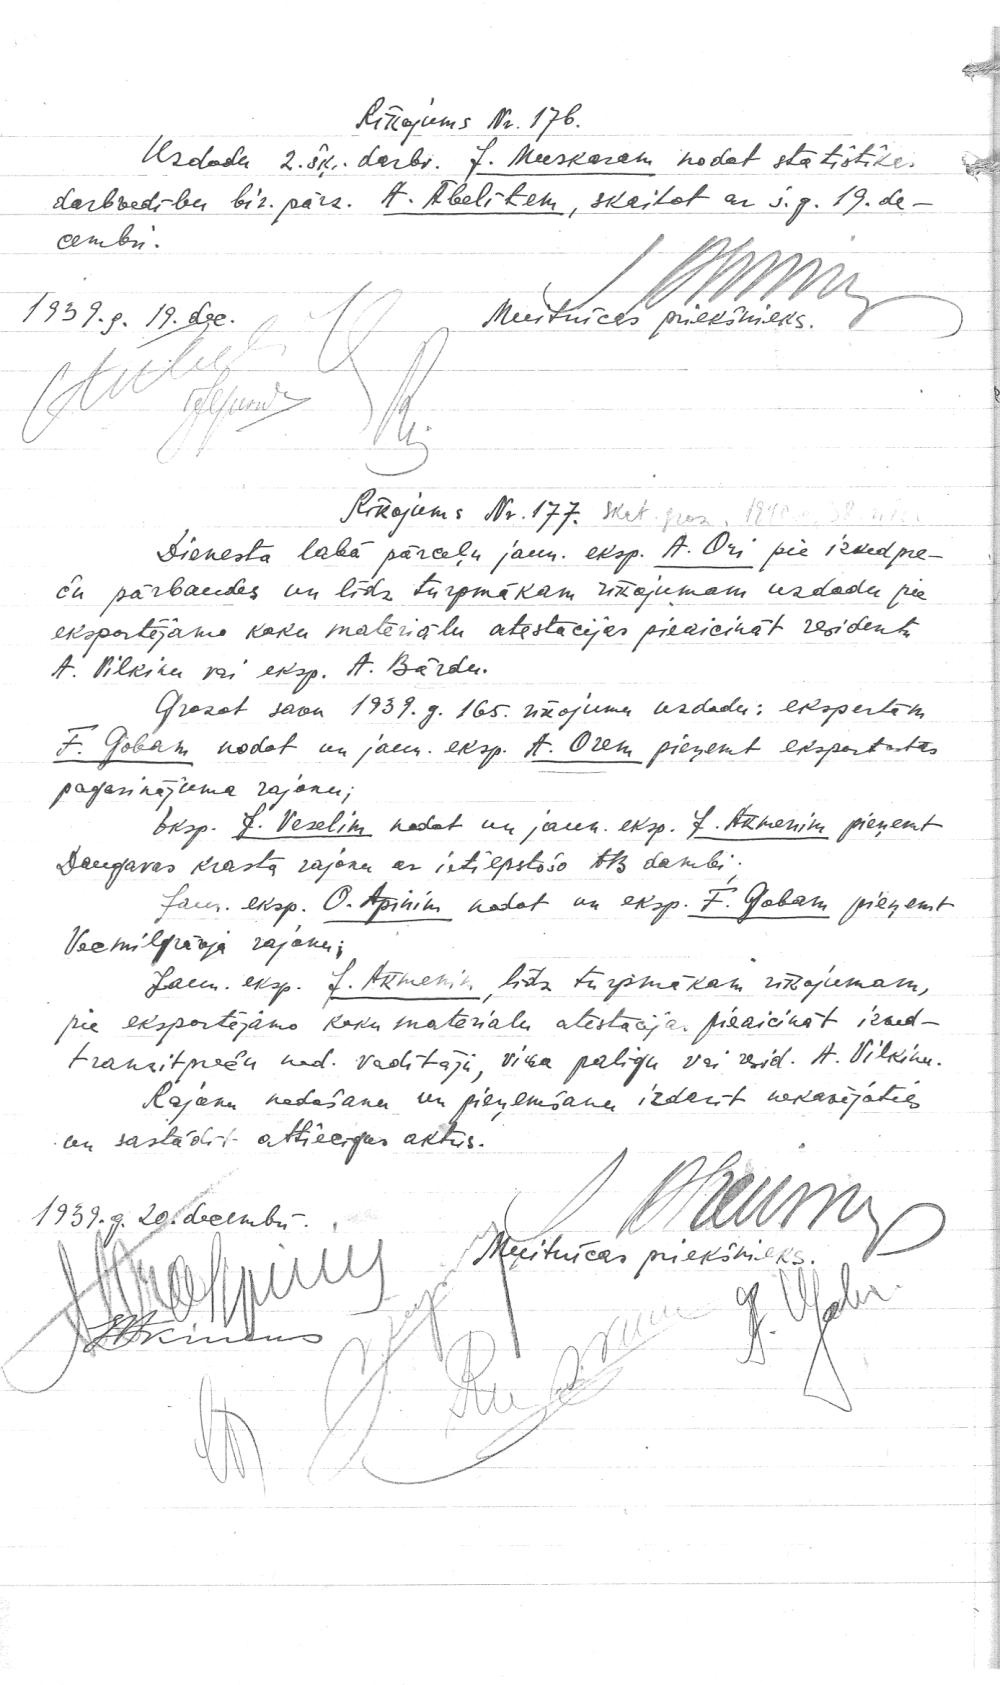 Rīkojums Nr. 176.
Uzdodu 2. šķ. darbv. J. Muskaram nodot statistikas
darbvedību bir. pārz. A. Ābelītem, skaitot ar š.g. 19. de-
cembri.
1939. g. 19. dec.
Muitnīcas priekšnieks.
Rīkojums Nr. 177. Skat. groz. 1940
Dienesta labā pārceļu jaun. eksp. A. Ori pie izvedpre-
ču pārbaudes un līdz turpmākam rīkojumam uzdodu pie
eksportējamo koku materiālu atestācijas pieaicināt residentu
A. Vilkinu vai eksp. A. Bārdu.
Grozot savu 1939. g. 165. rīkojumu uzdodu: ekspertam
F. Gobam nodot un jaun. eksp. A. Orem pieņemt eksportostas
pagarinājuma rajonu;
Eksp. J. Veselim nodot un jaun. eksp. J. Akmenim pieņemt
Daugavas krasta rajonu ar ietilpstošo AB dambi;
Jaun. eksp. O. Apinim nodot un eksp. F. Gobam pieņemt
Vecmilgrāvja rajonu;
Jaun. eksp. J. Akmenim, līdz turpmākam rīkojumam,
pie eksportējamo koku materialu atestācijas pieaicināt izved-
transitpreču nod. vadītāju, viņa palīgu vai resid. A. Vilkinu.
Rajonu nodošanu un pieņemšanu izdarīt nekavējoties
un sastādīt attiecīgus aktus.
1939. g. 20. decembrī.
Muitnīcas priekšnieks.
F. Goba